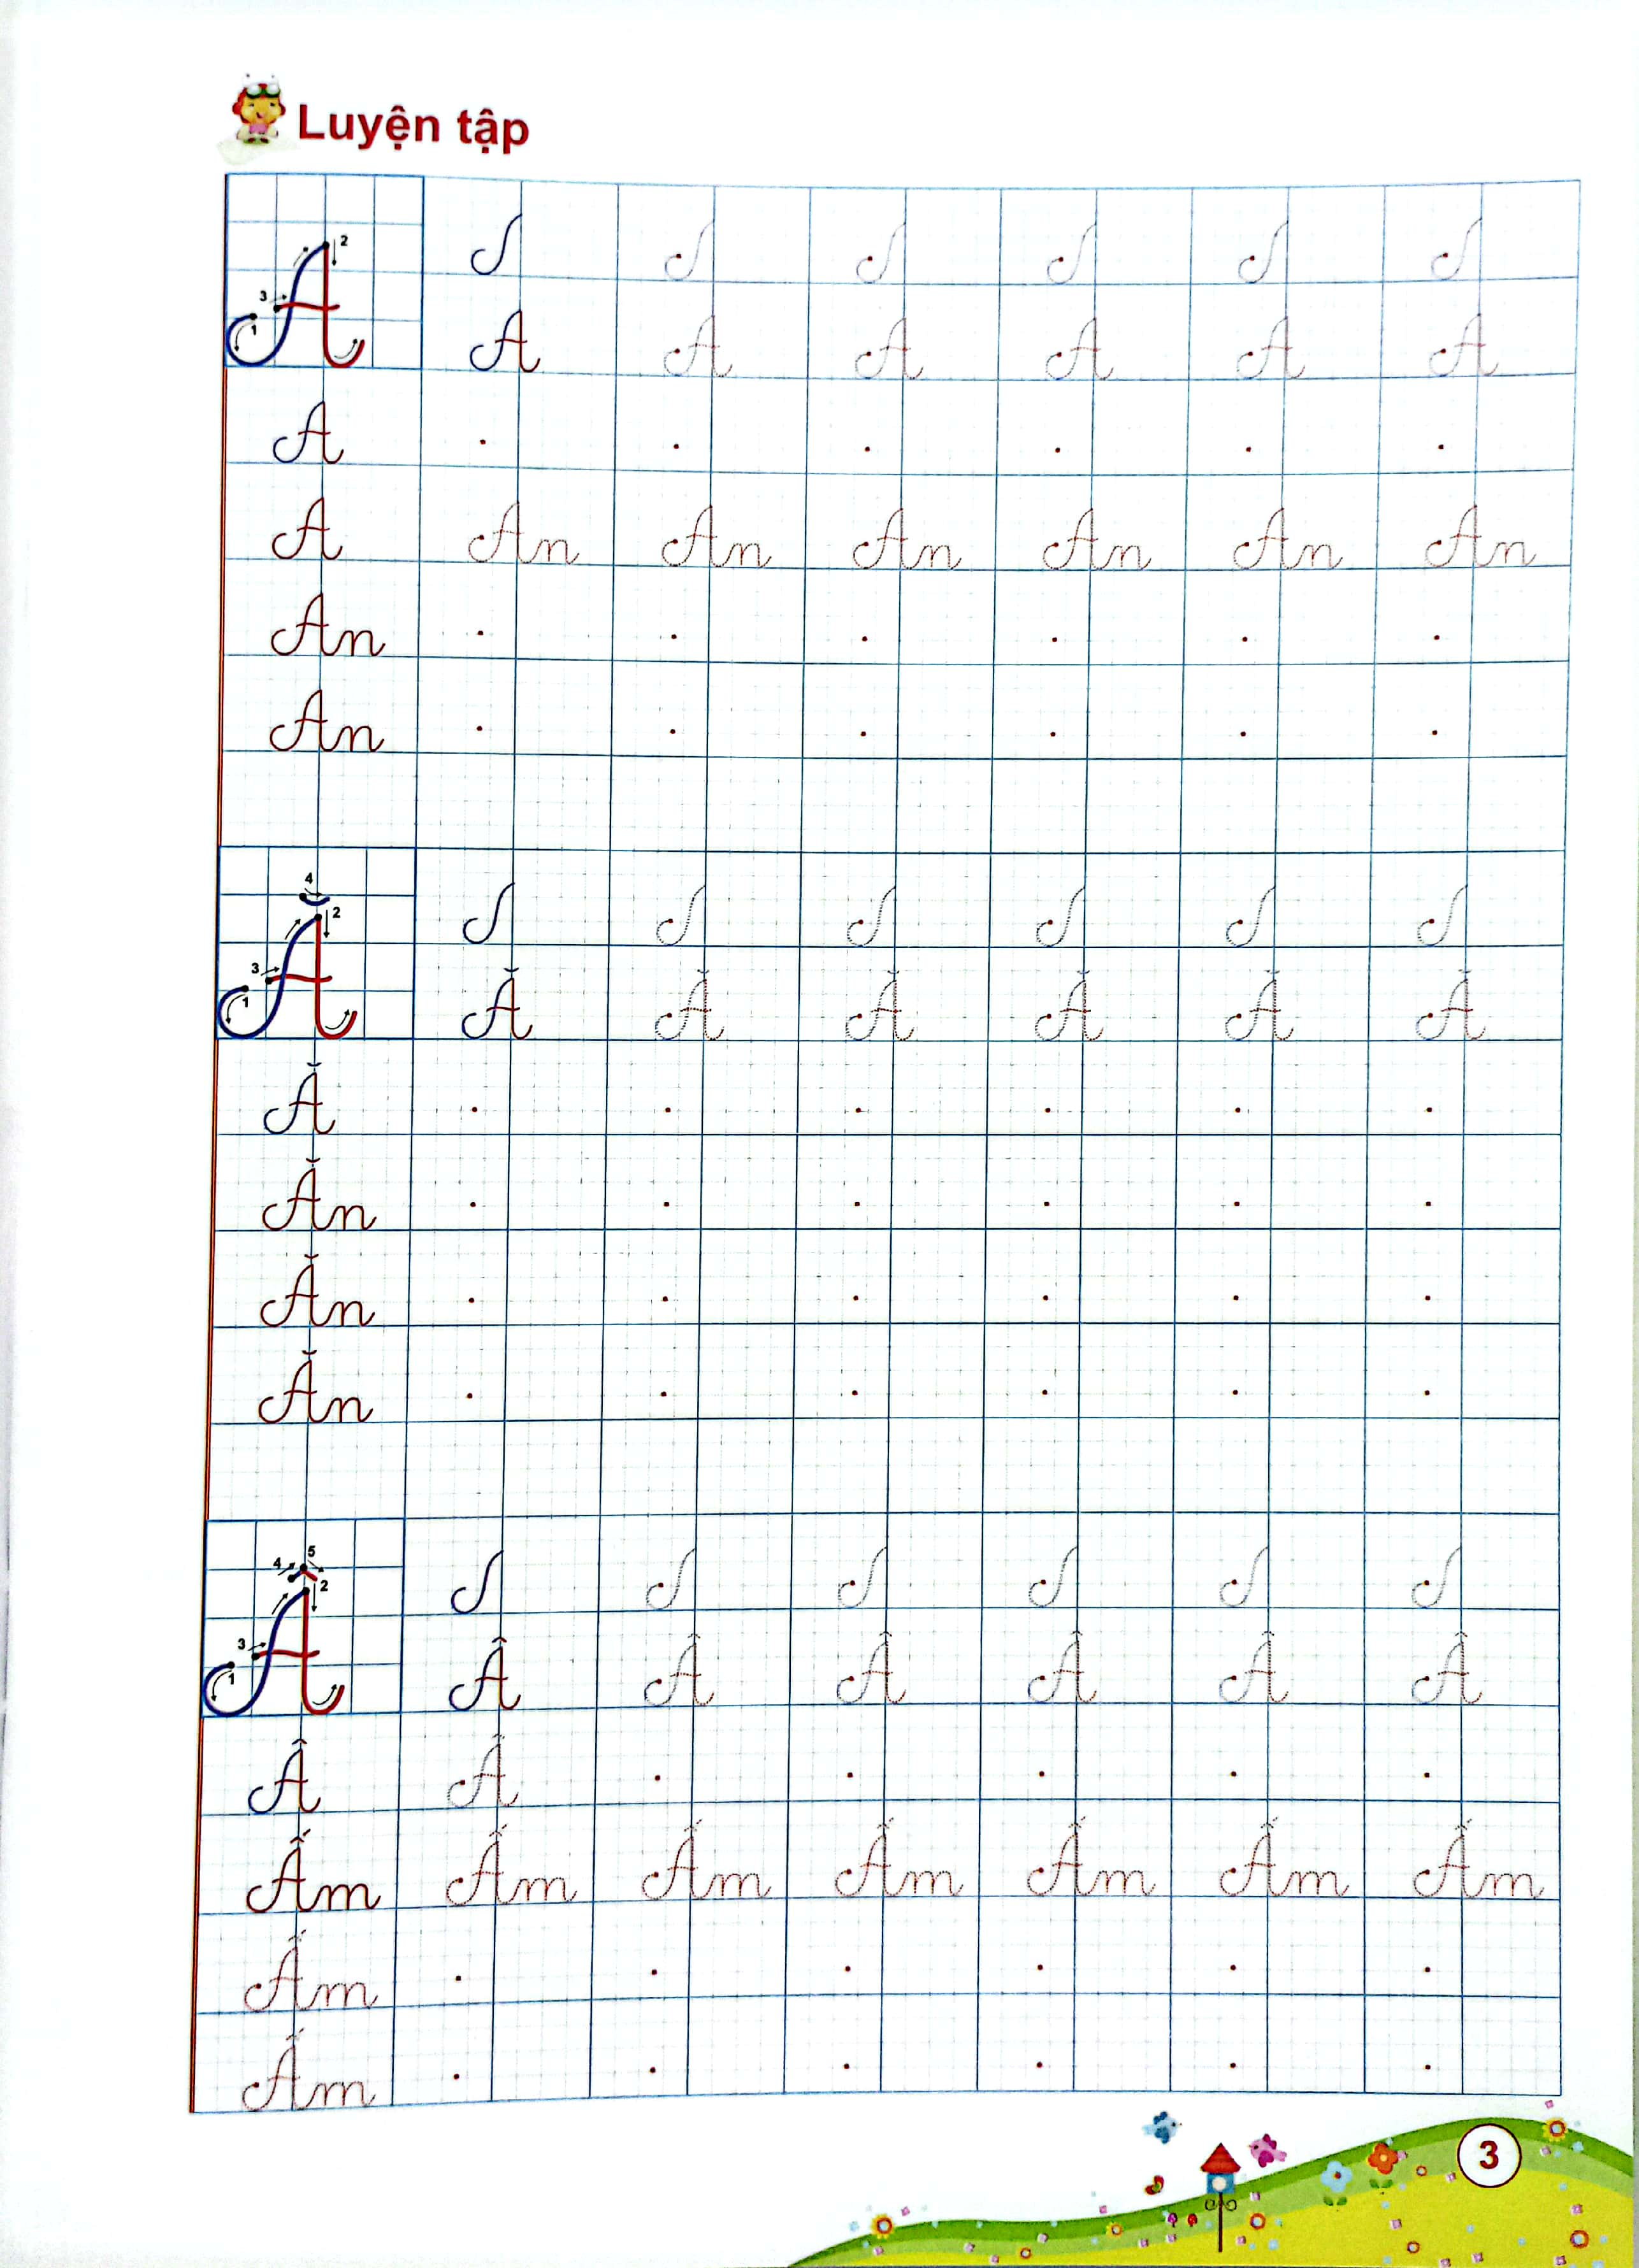 Luyện tập
1 2 3
A A A A A A
A
A An An An An An An
An
An
1 2 3 4
Ă Ă Ă Ă Ă Ă
Ă
Ăn
Ăn
Ăn
1 2 3 4 5
Â Â Â Â Â Â
Â Â
Ấm Ấm Ấm Ấm Ấm Ấm Ấm
Ấm
Ấm
3